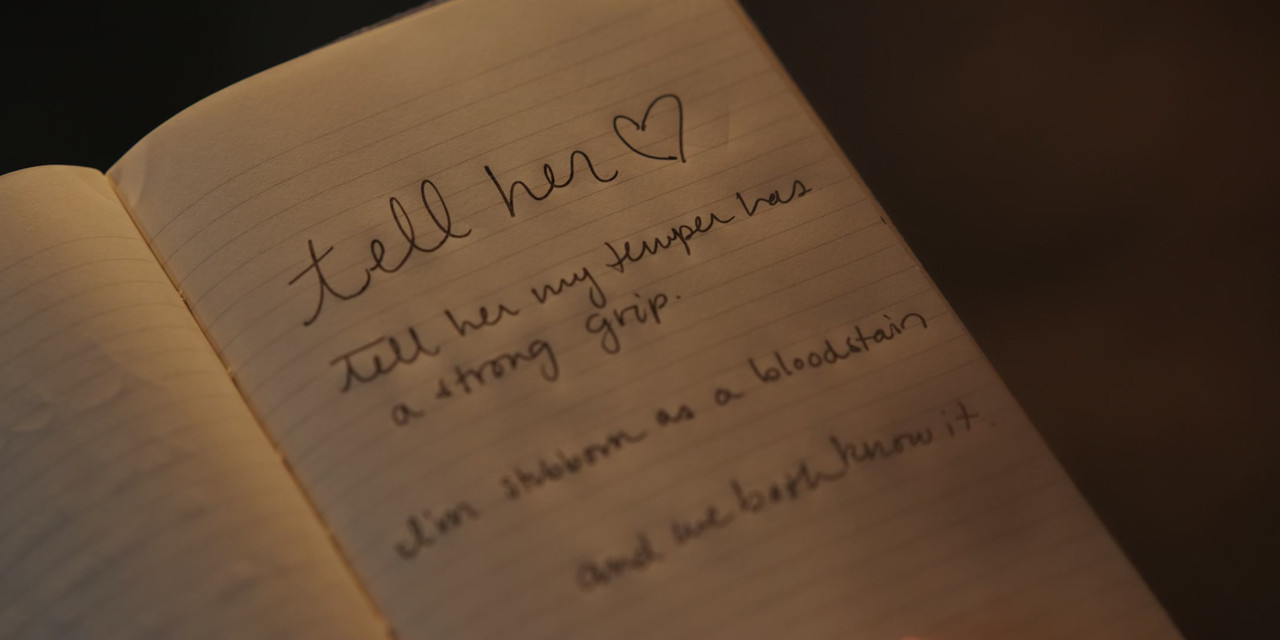 tell her ♡
Tell her my temper has
a strong grip.
I'm stubborn as a bloodstain
and we both know it.